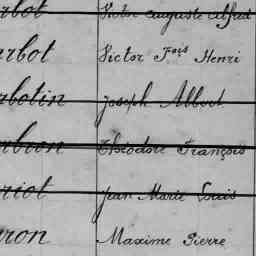 rbot Victor Auguste Alfred
rbot Victor Fois Henri
rbotin Joseph Albert
Théodore François
riot Jean Marie Louis
ron Maxime Pierre